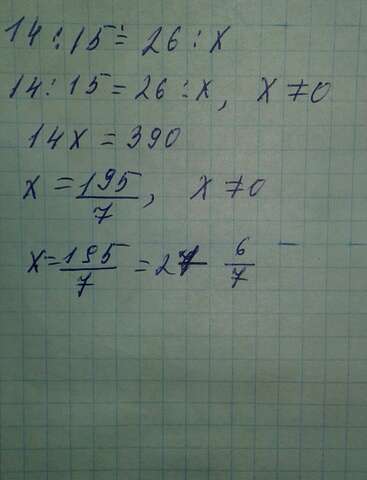 14 : 15 = 26 : x
14 : 15 = 26 : x, x ≠ 0
14x = 390
x = 195/7, x ≠ 0
x = 195/7 = 27 6/7